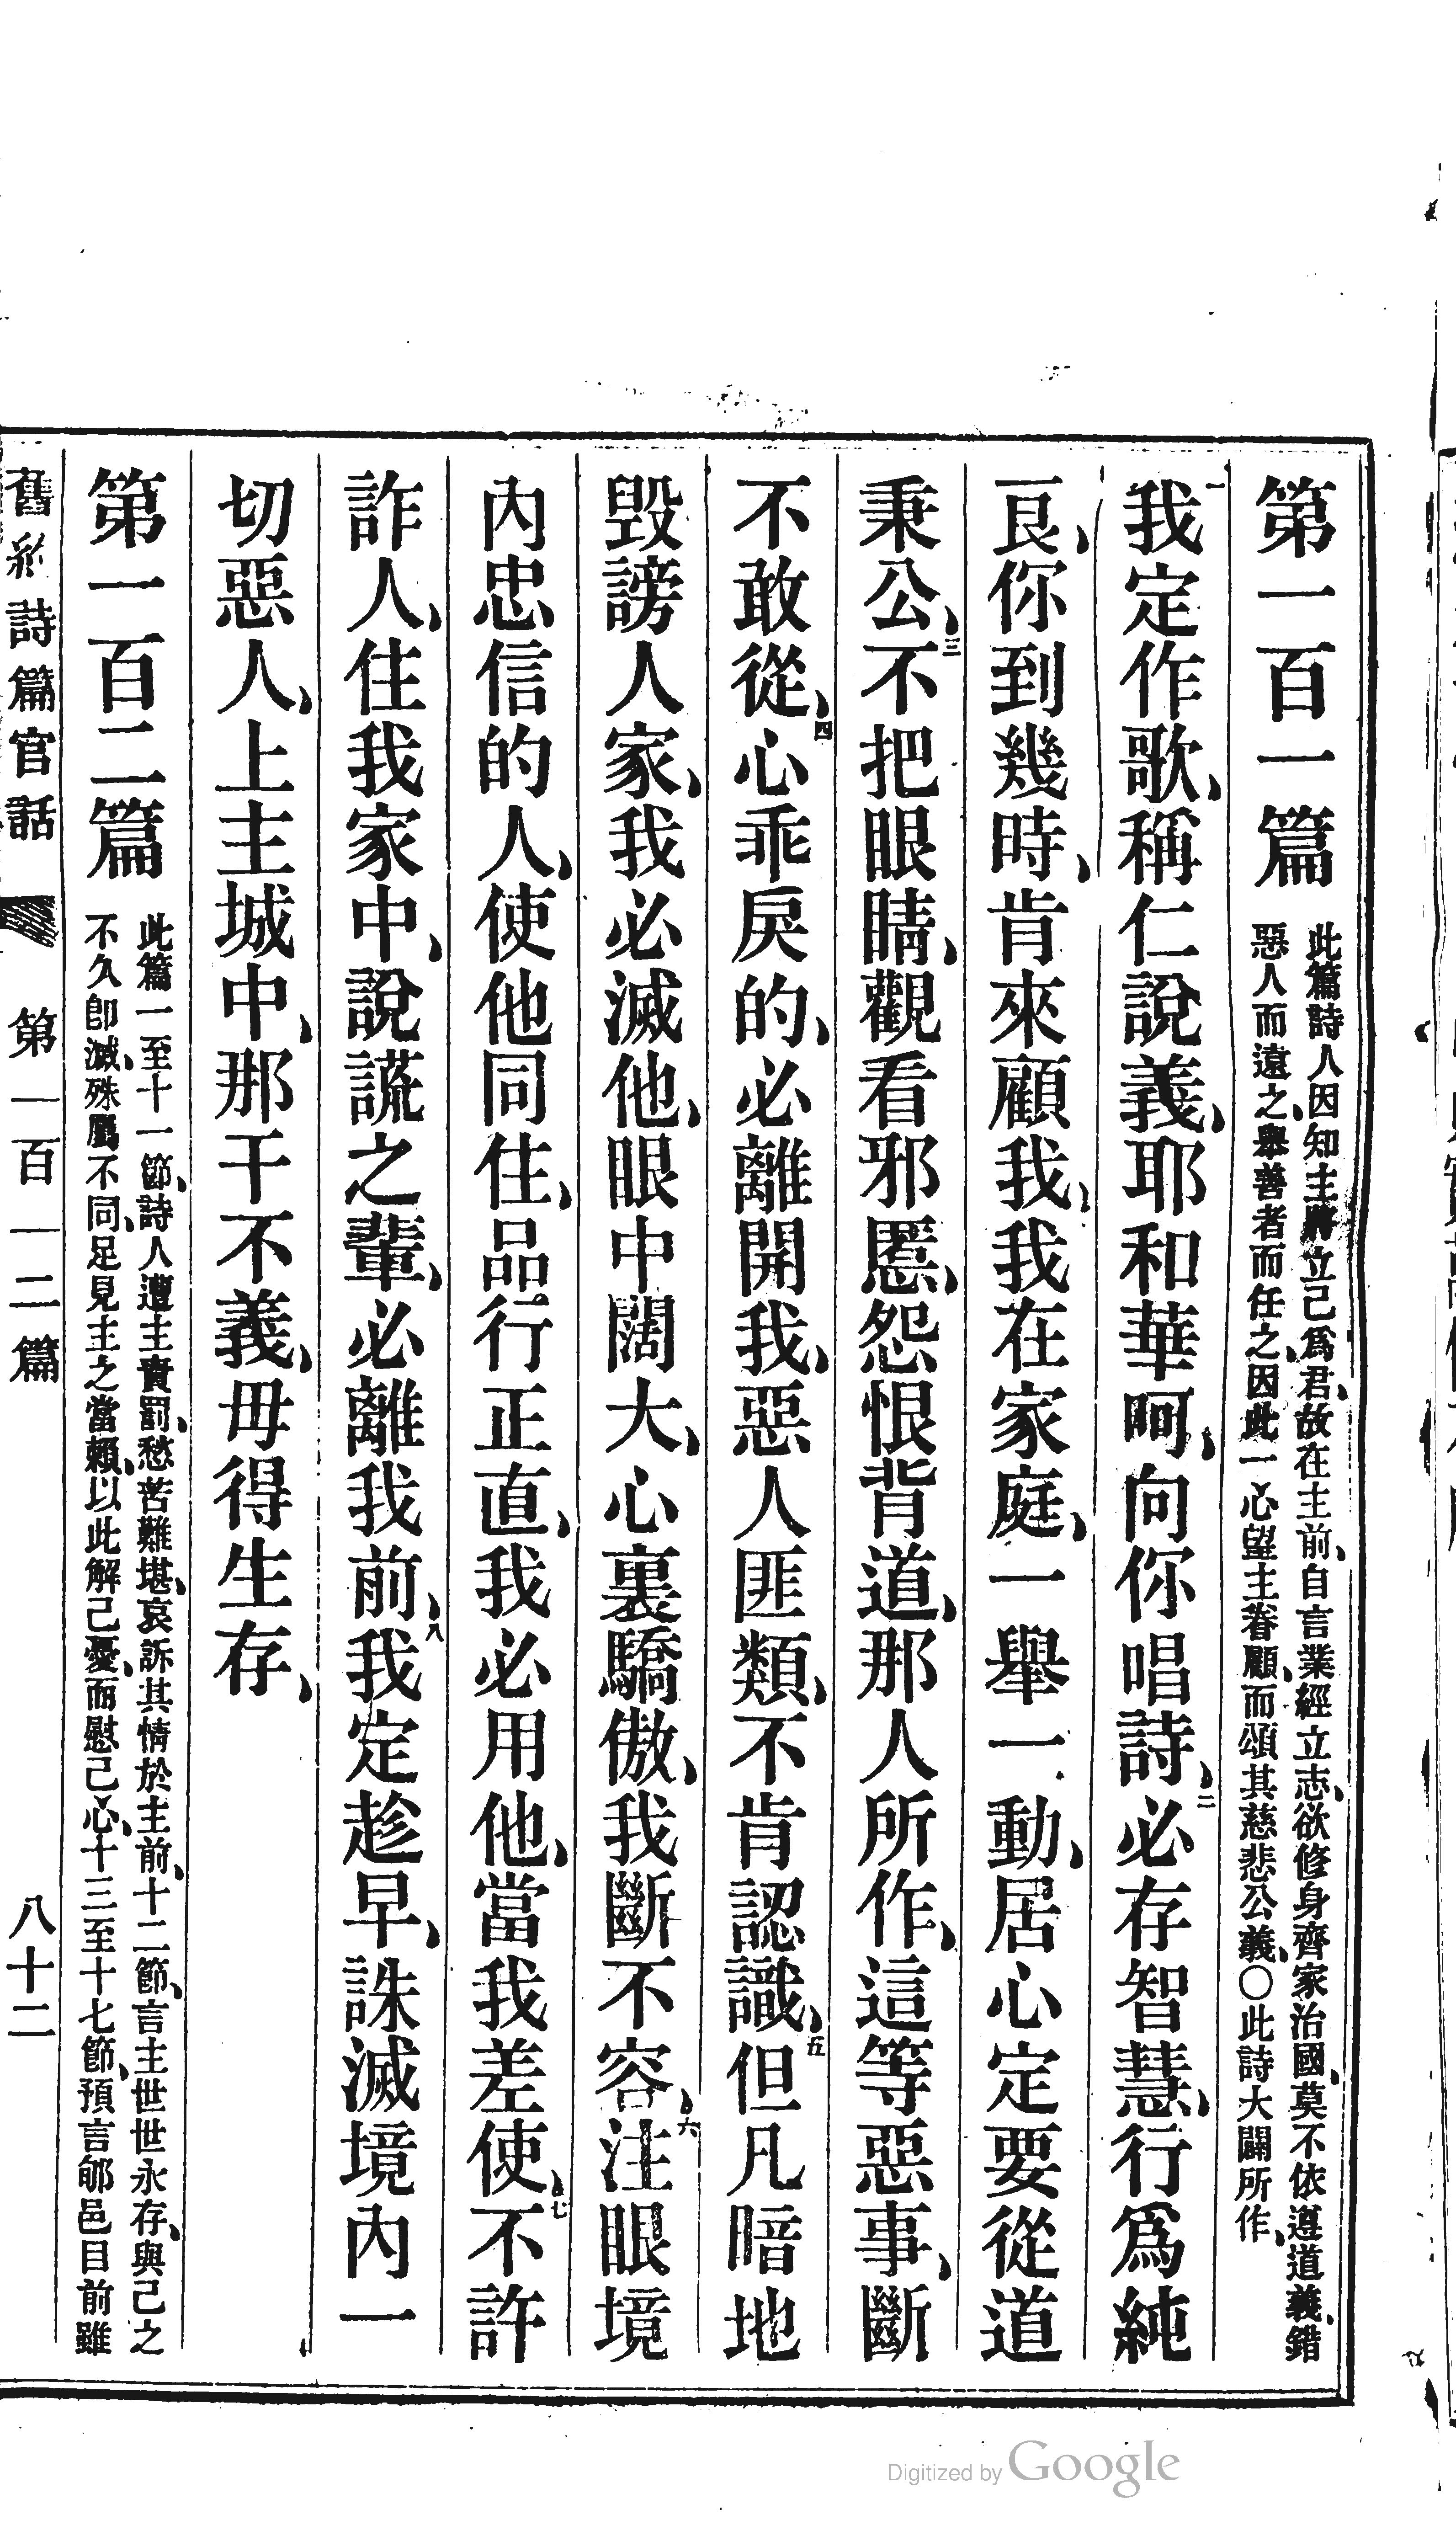 第一百一篇
此篇詩人因知主將立己爲君、故在主前、自言業經立志、欲修身齊家治國、莫不依遵道義、錯
惡人而遠之、舉善者而任之、因此一心望主眷顧、而頌其慈悲公義、○此詩大闢所作、
一我定作歌、稱仁說義、耶和華呵、向你唱詩、二必存智慧、行爲純
良、你到幾時、肯來顧我、我在家庭、一舉一動、居心定要從道
秉公、三不把眼睛、觀看邪慝、怨恨背道、那人所作、這等惡事、斷
不敢從、四心乖戾的、必離開我、惡人匪類、不肯認識、五但凡暗地
毀謗人家、我必滅他、眼中闊大、心裏驕傲、我斷不容、六注眼境
內忠信的人、使他同住、品行正直、我必用他、當我差使、七不許
詐人、住我家中、說謊之輩、必離我前、八我定趁早、誅滅境內一
切惡人、上主城中、那干不義、毋得生存、
第一百二篇
此篇一至十一節、詩人遭主責罰、愁苦難堪、哀訴其情於主前、十二節、言主世世永存、與己之
不久卽滅、殊屬不同、足見主之當賴、以此解己憂、而慰己心、十三至十七節、預言郇邑目前雖
舊約詩篇官話
第一百一二篇
八十二
Digitized by Google